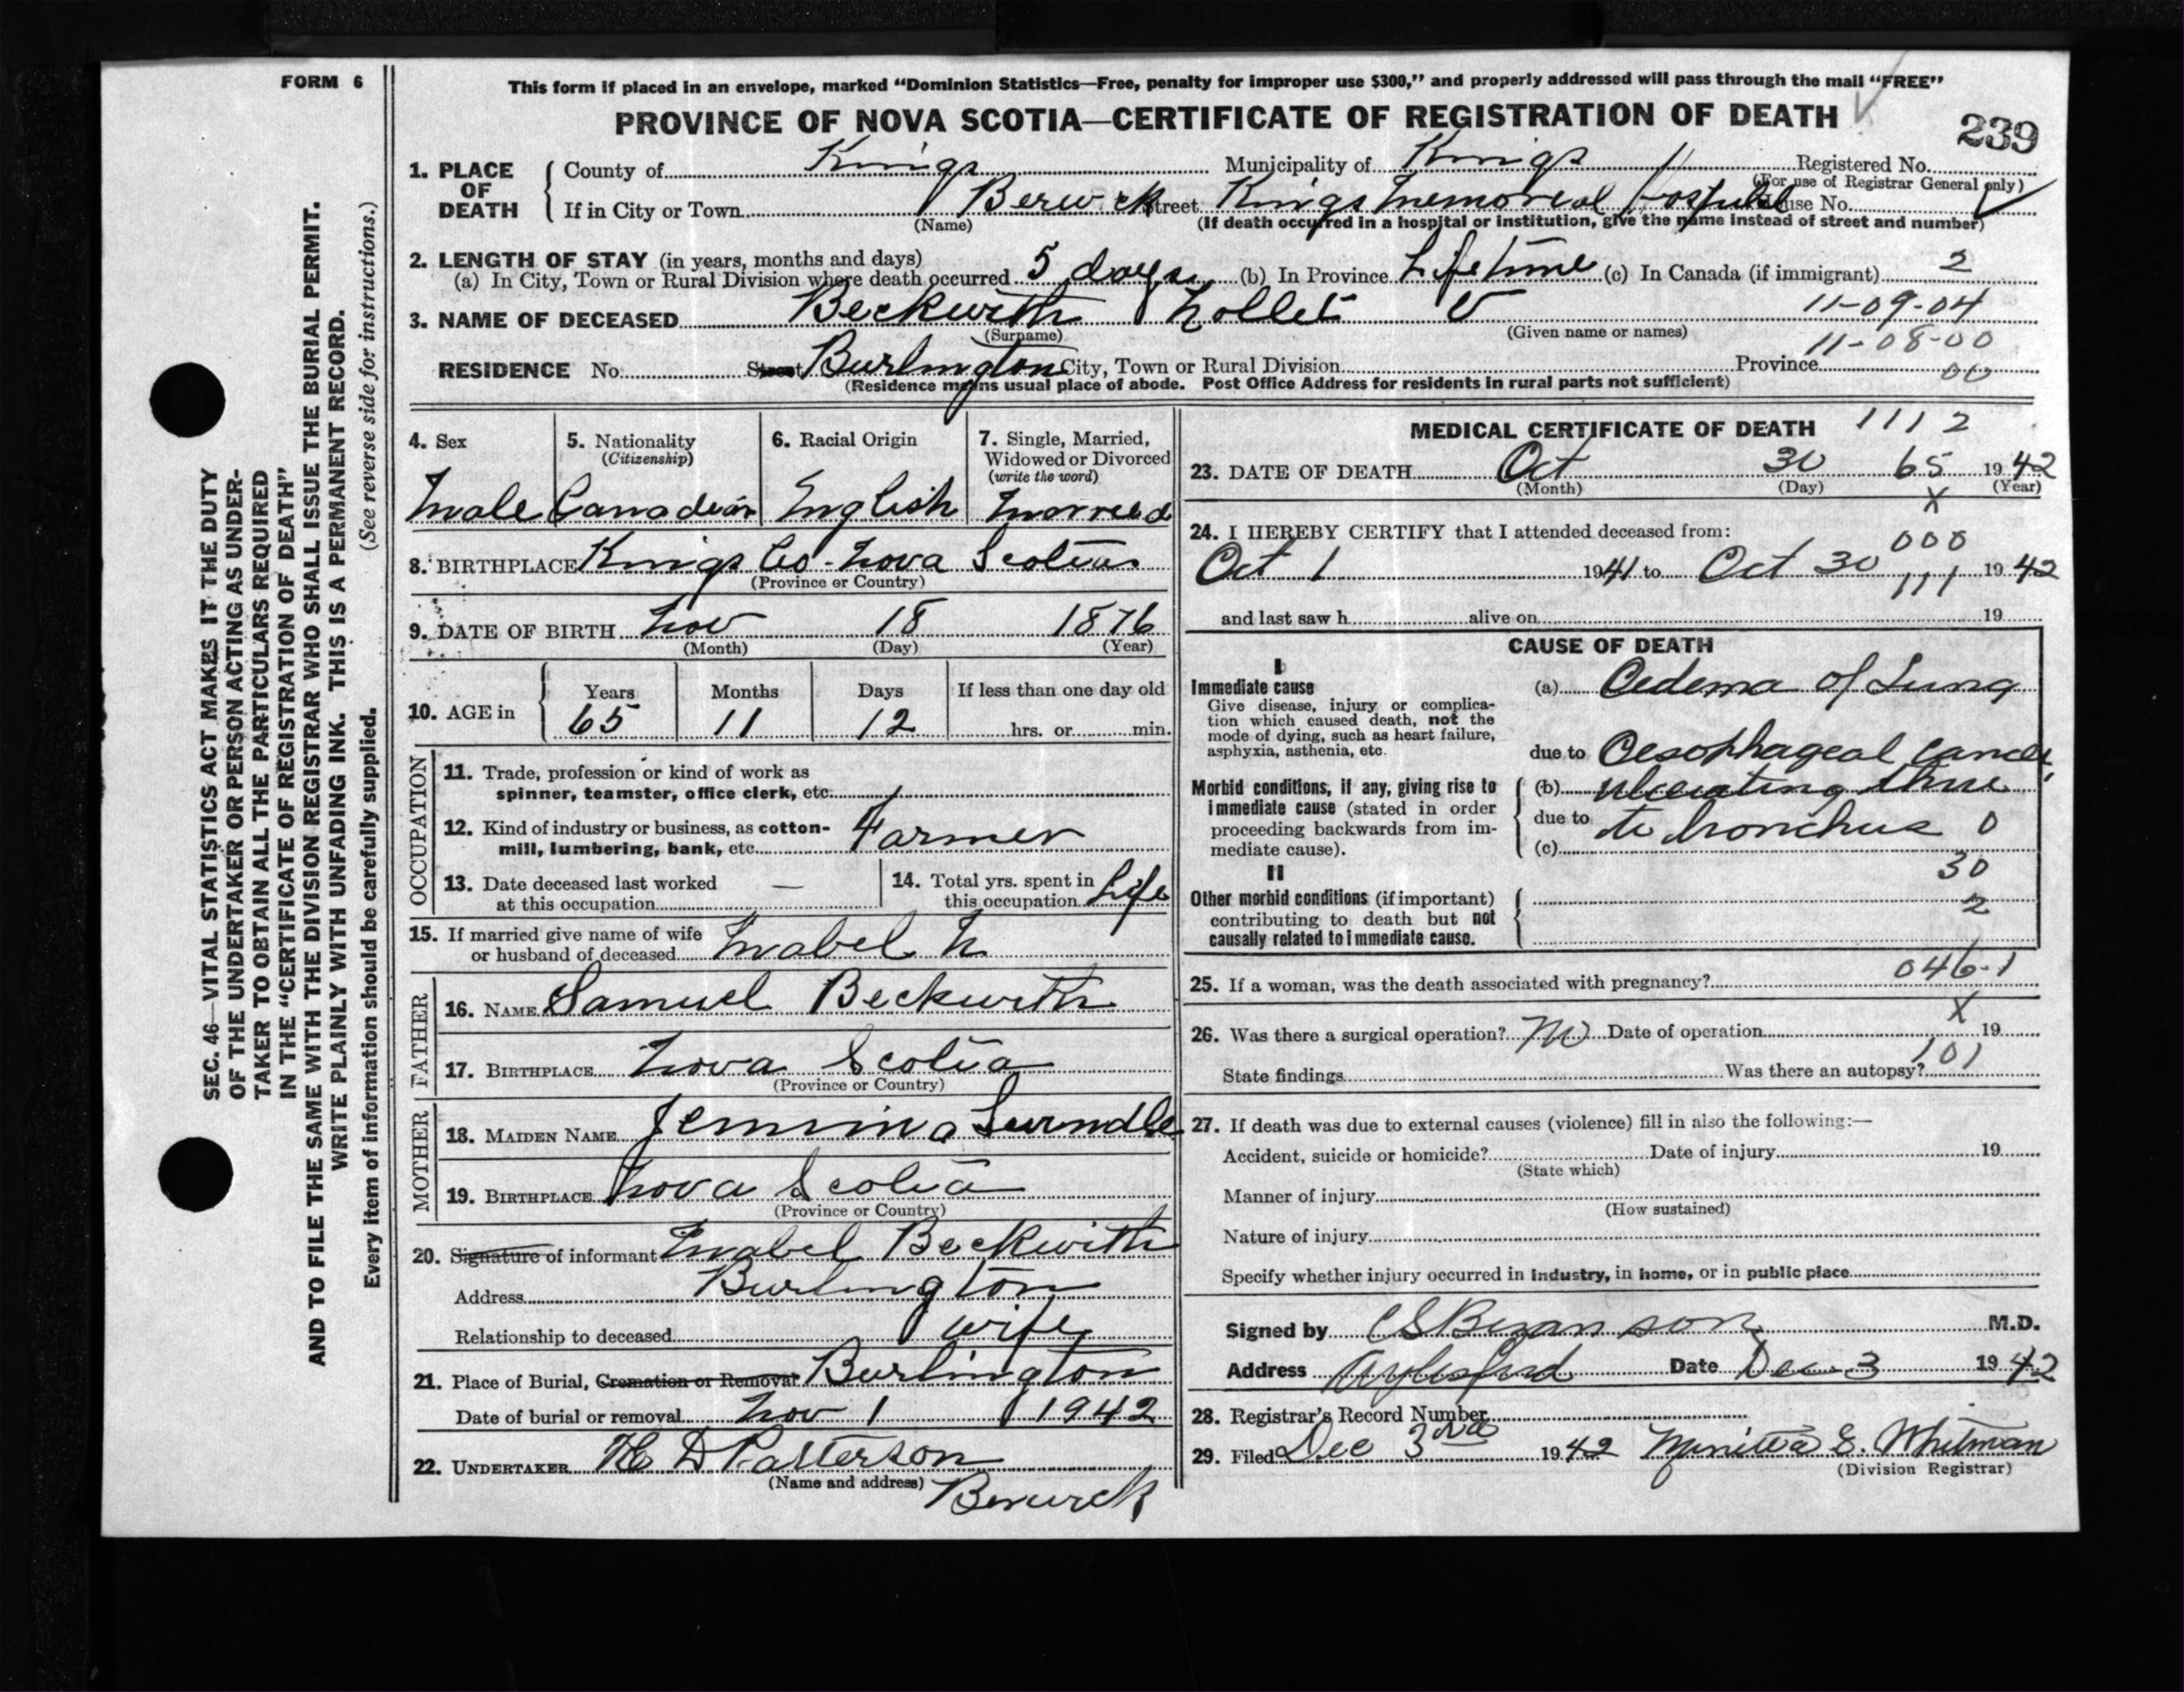 FORM 6
This form if placed in an envelope, marked "Dominion Statistics—Free, penalty for improper use $300," and properly addressed will pass through the mail "FREE"
PROVINCE OF NOVA SCOTIA—CERTIFICATE OF REGISTRATION OF DEATH
239
1. PLACE OF DEATH
County of Kings Municipality of Kings Registered No.
(For use of Registrar General only)
If in City or Town Berwick Street Kings Memorial Hospital House No.
(Name) (If death occurred in a hospital or institution, give the name instead of street and number)
2. LENGTH OF STAY (in years, months and days)
(a) In City, Town or Rural Division where death occurred 5 days (b) In Province Lifetime (c) In Canada (if immigrant) 2
3. NAME OF DECEASED Beckwith V 11-09-04
(Surname) (Given name or names) 11-08-00
RESIDENCE No. Street Burlington City, Town or Rural Division Province 00
(Residence means usual place of abode. Post Office Address for residents in rural parts not sufficient)
4. Sex
Male
5. Nationality
(Citizenship)
Canadian
6. Racial Origin
English
7. Single, Married,
Widowed or Divorced
(write the word)
Married
8. BIRTHPLACE Kings Co. Nova Scotia
(Province or Country)
9. DATE OF BIRTH Nov 18 1876
(Month) (Day) (Year)
10. AGE in
Years Months Days If less than one day old
65 11 12 hrs. or min.
OCCUPATION
11. Trade, profession or kind of work as
spinner, teamster, office clerk, etc.
12. Kind of industry or business, as cotton-
mill, lumbering, bank, etc. Farmer
13. Date deceased last worked
at this occupation —
14. Total yrs. spent in
this occupation Life
15. If married give name of wife
or husband of deceased Mabel N
FATHER
16. NAME Samuel Beckwith
17. BIRTHPLACE Nova Scotia
(Province or Country)
MOTHER
18. MAIDEN NAME Jemima
19. BIRTHPLACE Nova Scotia
(Province or Country)
20. Signature of informant Mabel Beckwith
Address Burlington
Relationship to deceased wife
21. Place of Burial, Cremation or Removal Burlington
Date of burial or removal Nov 1 1942
22. UNDERTAKER D Patterson
(Name and address) Berwick
MEDICAL CERTIFICATE OF DEATH 1112
23. DATE OF DEATH Oct 30 65 1942
(Month) (Day) X (Year)
24. I HEREBY CERTIFY that I attended deceased from:
000
Oct 1 1941 to Oct 30 1942
111
and last saw h alive on 19
CAUSE OF DEATH
I
Immediate cause
Give disease, injury or complica-
tion which caused death, not the
mode of dying, such as heart failure,
asphyxia, asthenia, etc.
(a) Oedema of Lung
due to Oesophageal cancer
Morbid conditions, if any, giving rise to
immediate cause (stated in order
proceeding backwards from im-
mediate cause).
(b) ulcerating thru
due to to bronchus 0
(c)
30
II
Other morbid conditions (if important)
contributing to death but not
causally related to immediate cause.
2
046-1
25. If a woman, was the death associated with pregnancy?
X
26. Was there a surgical operation? No Date of operation 19
101
State findings Was there an autopsy?
27. If death was due to external causes (violence) fill in also the following:—
Accident, suicide or homicide? Date of injury 19
(State which)
Manner of injury
(How sustained)
Nature of injury
Specify whether injury occurred in industry, in home, or in public place
Signed by M.D.
Address Aylesford Date Dec 3 1942
28. Registrar's Record Number
29. Filed Dec 3rd 1942 E. Whitman
(Division Registrar)
SEC. 46—VITAL STATISTICS ACT MAKES IT THE DUTY
OF THE UNDERTAKER OR PERSON ACTING AS UNDER-
TAKER TO OBTAIN ALL THE PARTICULARS REQUIRED
IN THE "CERTIFICATE OF REGISTRATION OF DEATH"
AND TO FILE THE SAME WITH THE DIVISION REGISTRAR WHO SHALL ISSUE THE BURIAL PERMIT.
WRITE PLAINLY WITH UNFADING INK. THIS IS A PERMANENT RECORD.
Every item of information should be carefully supplied. (See reverse side for instructions.)